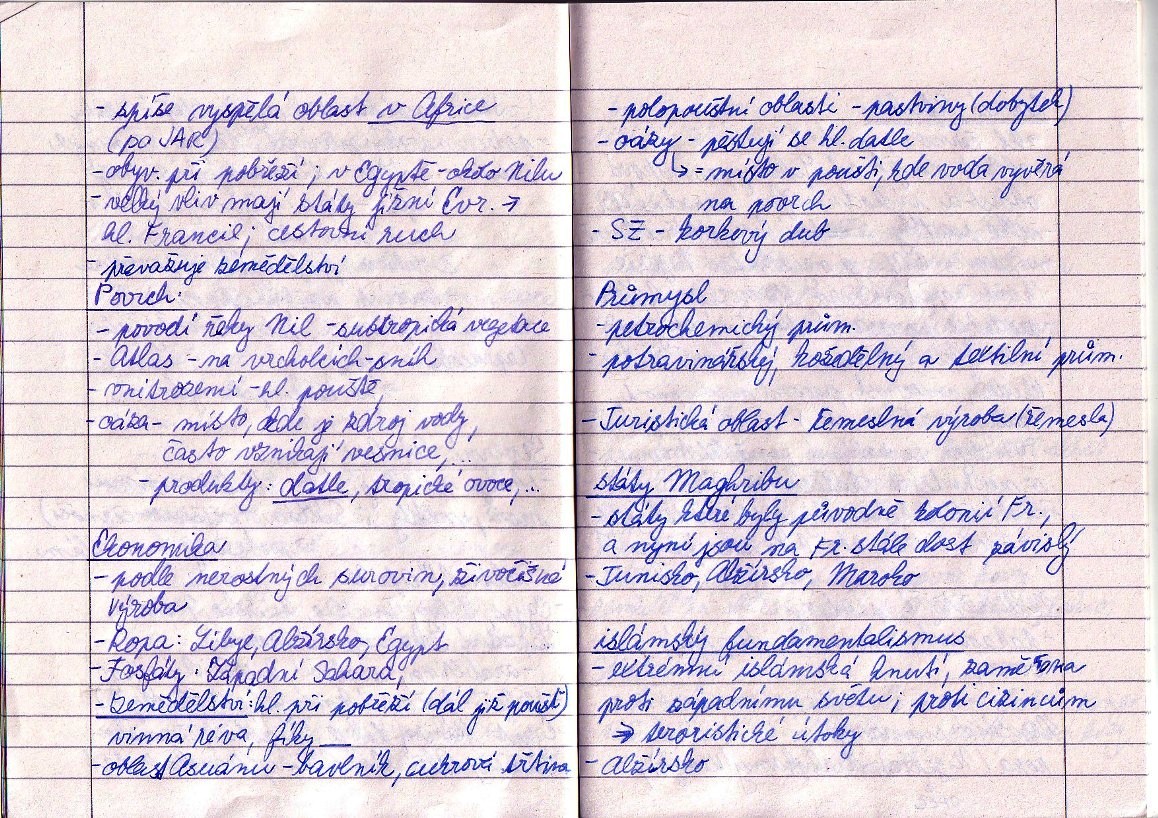 - spíše vyspělá oblast v Africe
(po JAR)
- obyv. při pobřeží; v Egyptě - okolo Nilu
- velký vliv mají státy jižní Evr. →
hl. Francie; cestovní ruch
- převažuje zemědělství
Povrch:
- povodí řeky Nil - subtropická vegetace
- Atlas - na vrcholcích - sníh
- vnitrozemí - hl. pouště,
- oáza - místo, kde je zdroj vody,
často vznikají vesnice,...
- produkty: datle, tropické ovoce,...
Ekonomika
- podle nerostných surovin, živočišná
výroba
- Ropa: Libye, Alžírsko, Egypt
- Fosfáty: Západní Sahara,
- Zemědělství: hl. při pobřeží (dál již poušť)
vinná réva, fíky
- oblast Asuánu - bavlník, cukrová třtina
- polopouštní oblasti - pastviny (dobytek)
- oázy - pěstují se hl. datle
↳ = místo v poušti, kde voda vyvěrá
na povrch
- SZ - korkový dub
Průmysl
- petrochemický prům.
- potravinářský, kožedělný a textilní prům.
- Turistická oblast - řemeslná výroba (řemesla)
státy Maghribu
- státy které byly původně kolonií Fr.,
a nyní jsou na Fr. stále dost závislý
- Tunisko, Alžírsko, Maroko
islámský fundamentalismus
- extrémní islámská hnutí, zaměřena
proti západnímu světu; proti cizincům
⇒ teroristické útoky
- Alžírsko